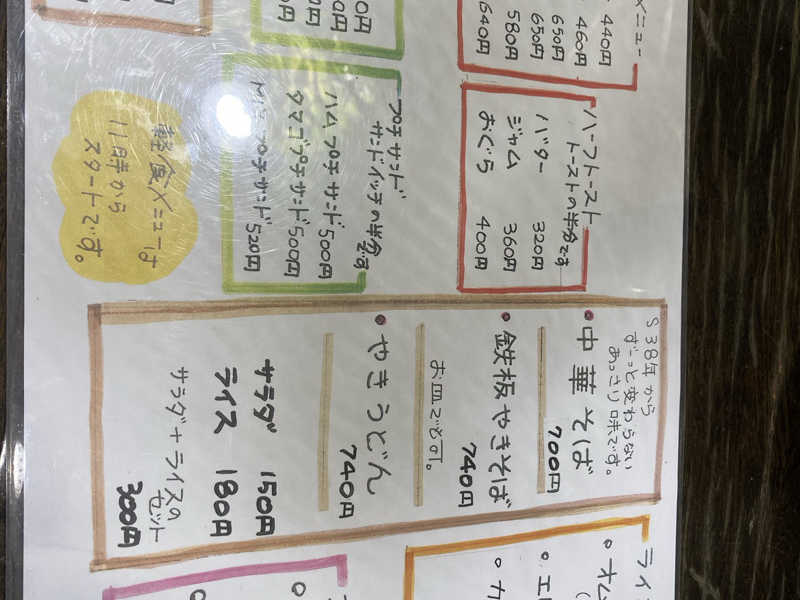 メニュー
440円
460円
650円
650円
580円
640円
ハーフトースト
トーストの半分です
バター 320円
ジャム 360円
おぐら 400円
プチサンド
サンドイッチの半分です
ハムプチサンド 500円
タマゴプチサンド 500円
プチサンド 520円
軽食メニューは
11時から
スタートです。
S38年から
ずーっと変わらない
あっさり味です。
・中華そば
700円
・鉄板やきそば
740円
お皿でも可。
・やきうどん
740円
サラダ 150円
ライス 180円
サラダ+ライスの
セット
300円
ライ